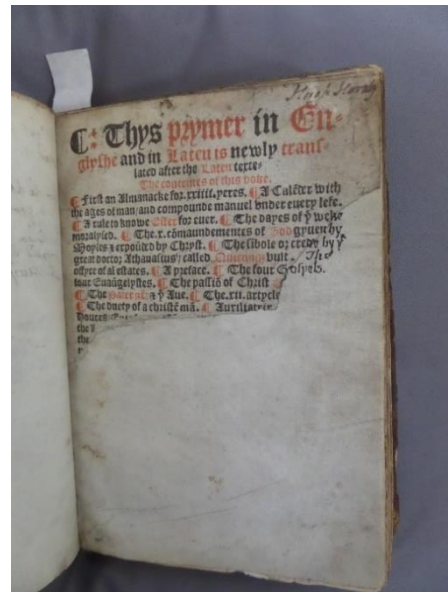 ¶: Thys prymer in En-
glyshe and in Laten is newly trans-
lated after the Laten texte.
The contentes of this boke.
¶ First an Almanacke for .xxiiii. yeres. ¶ A Calēder with
the ages of man/ and compounde manuel vnder euery lefe.
¶ A rule to knowe Ester for euer. ¶ The dayes of yͤ weke
moralysed. ¶ The .x. cōmaundementes of God gyuen by
Moyses & expouded by Chryst. ¶ The sibole or crede by yͤ
great doctor Athanasius/ called Quicunqz vult. ¶ The
offyce of al estates. ¶ A preface. ¶ The four Gospels.
four Euāgelystes. ¶ The passiō of Christ
¶ The Pater nr: & yͤ Aue. ¶ The .xii. artycle
¶ The duety of a christē mā. ¶
houres
the
the